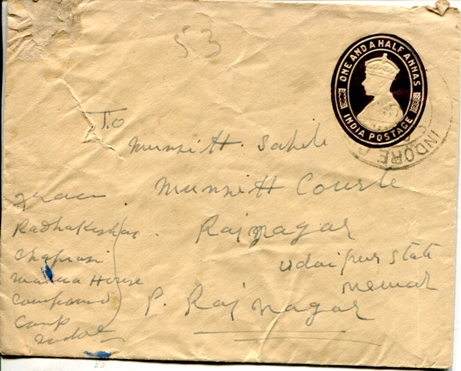 53
ONE AND A HALF ANNAS
INDIA POSTAGE
INDORE
To
Munsiff Sahib
Munsiff Courte
Rajnagar
Udaipur State
Mewar
P. Rajnagar
From
Radhakishan
Chaprasi
House
Compound
Camp
Indore